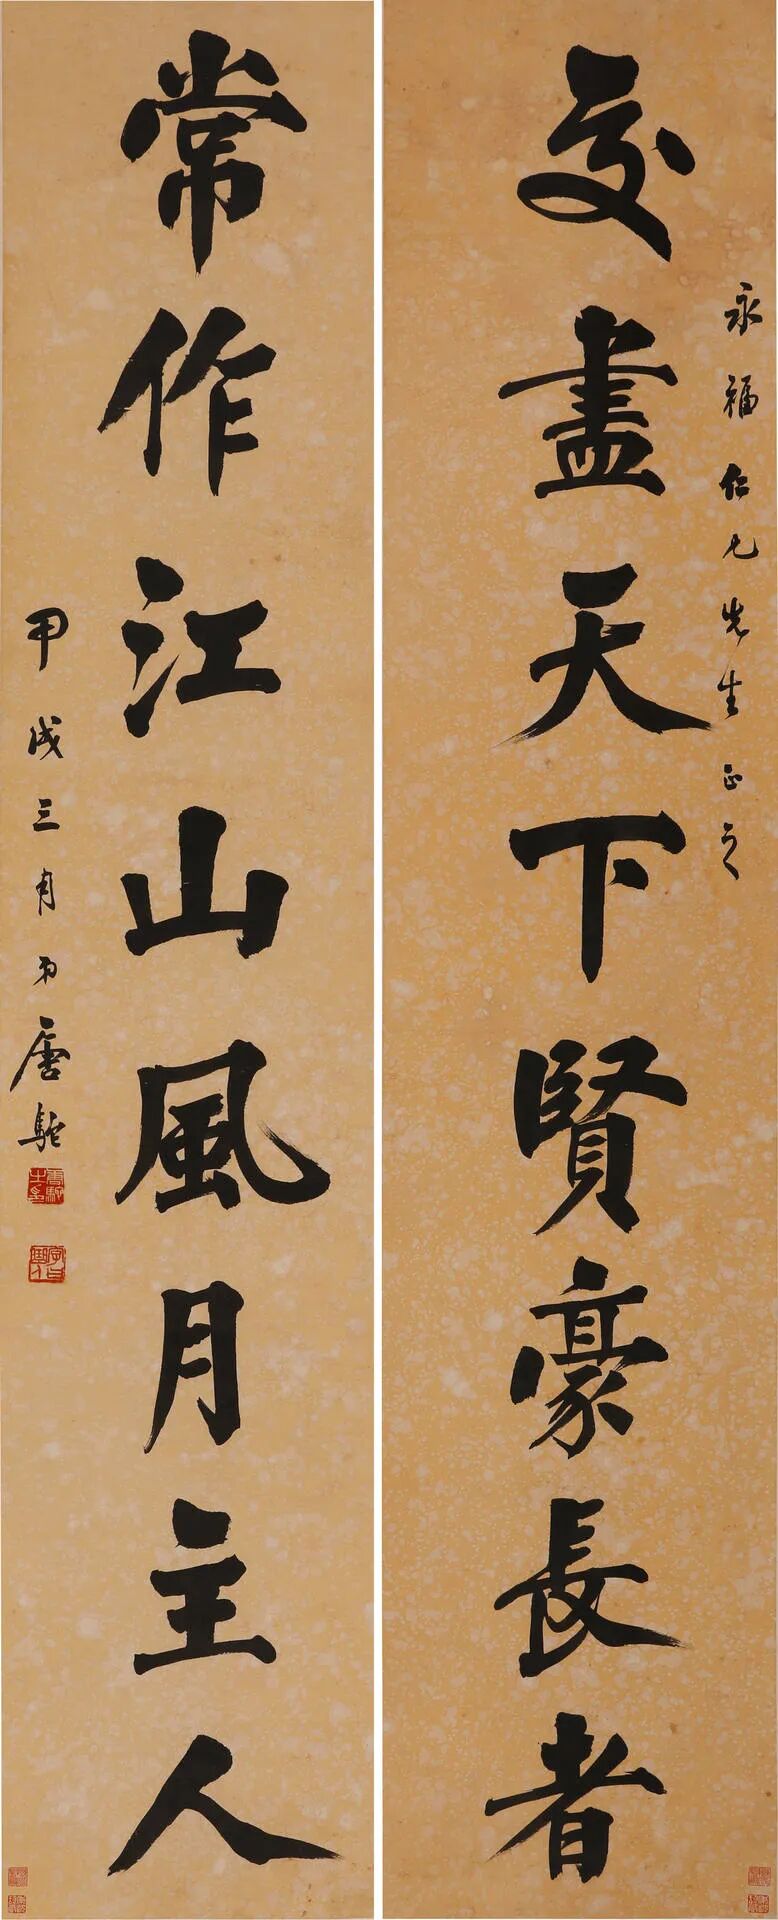 永福仁兄先生正之
交盡天下賢豪長者
常作江山風月主人
甲戌三月弟唐駝